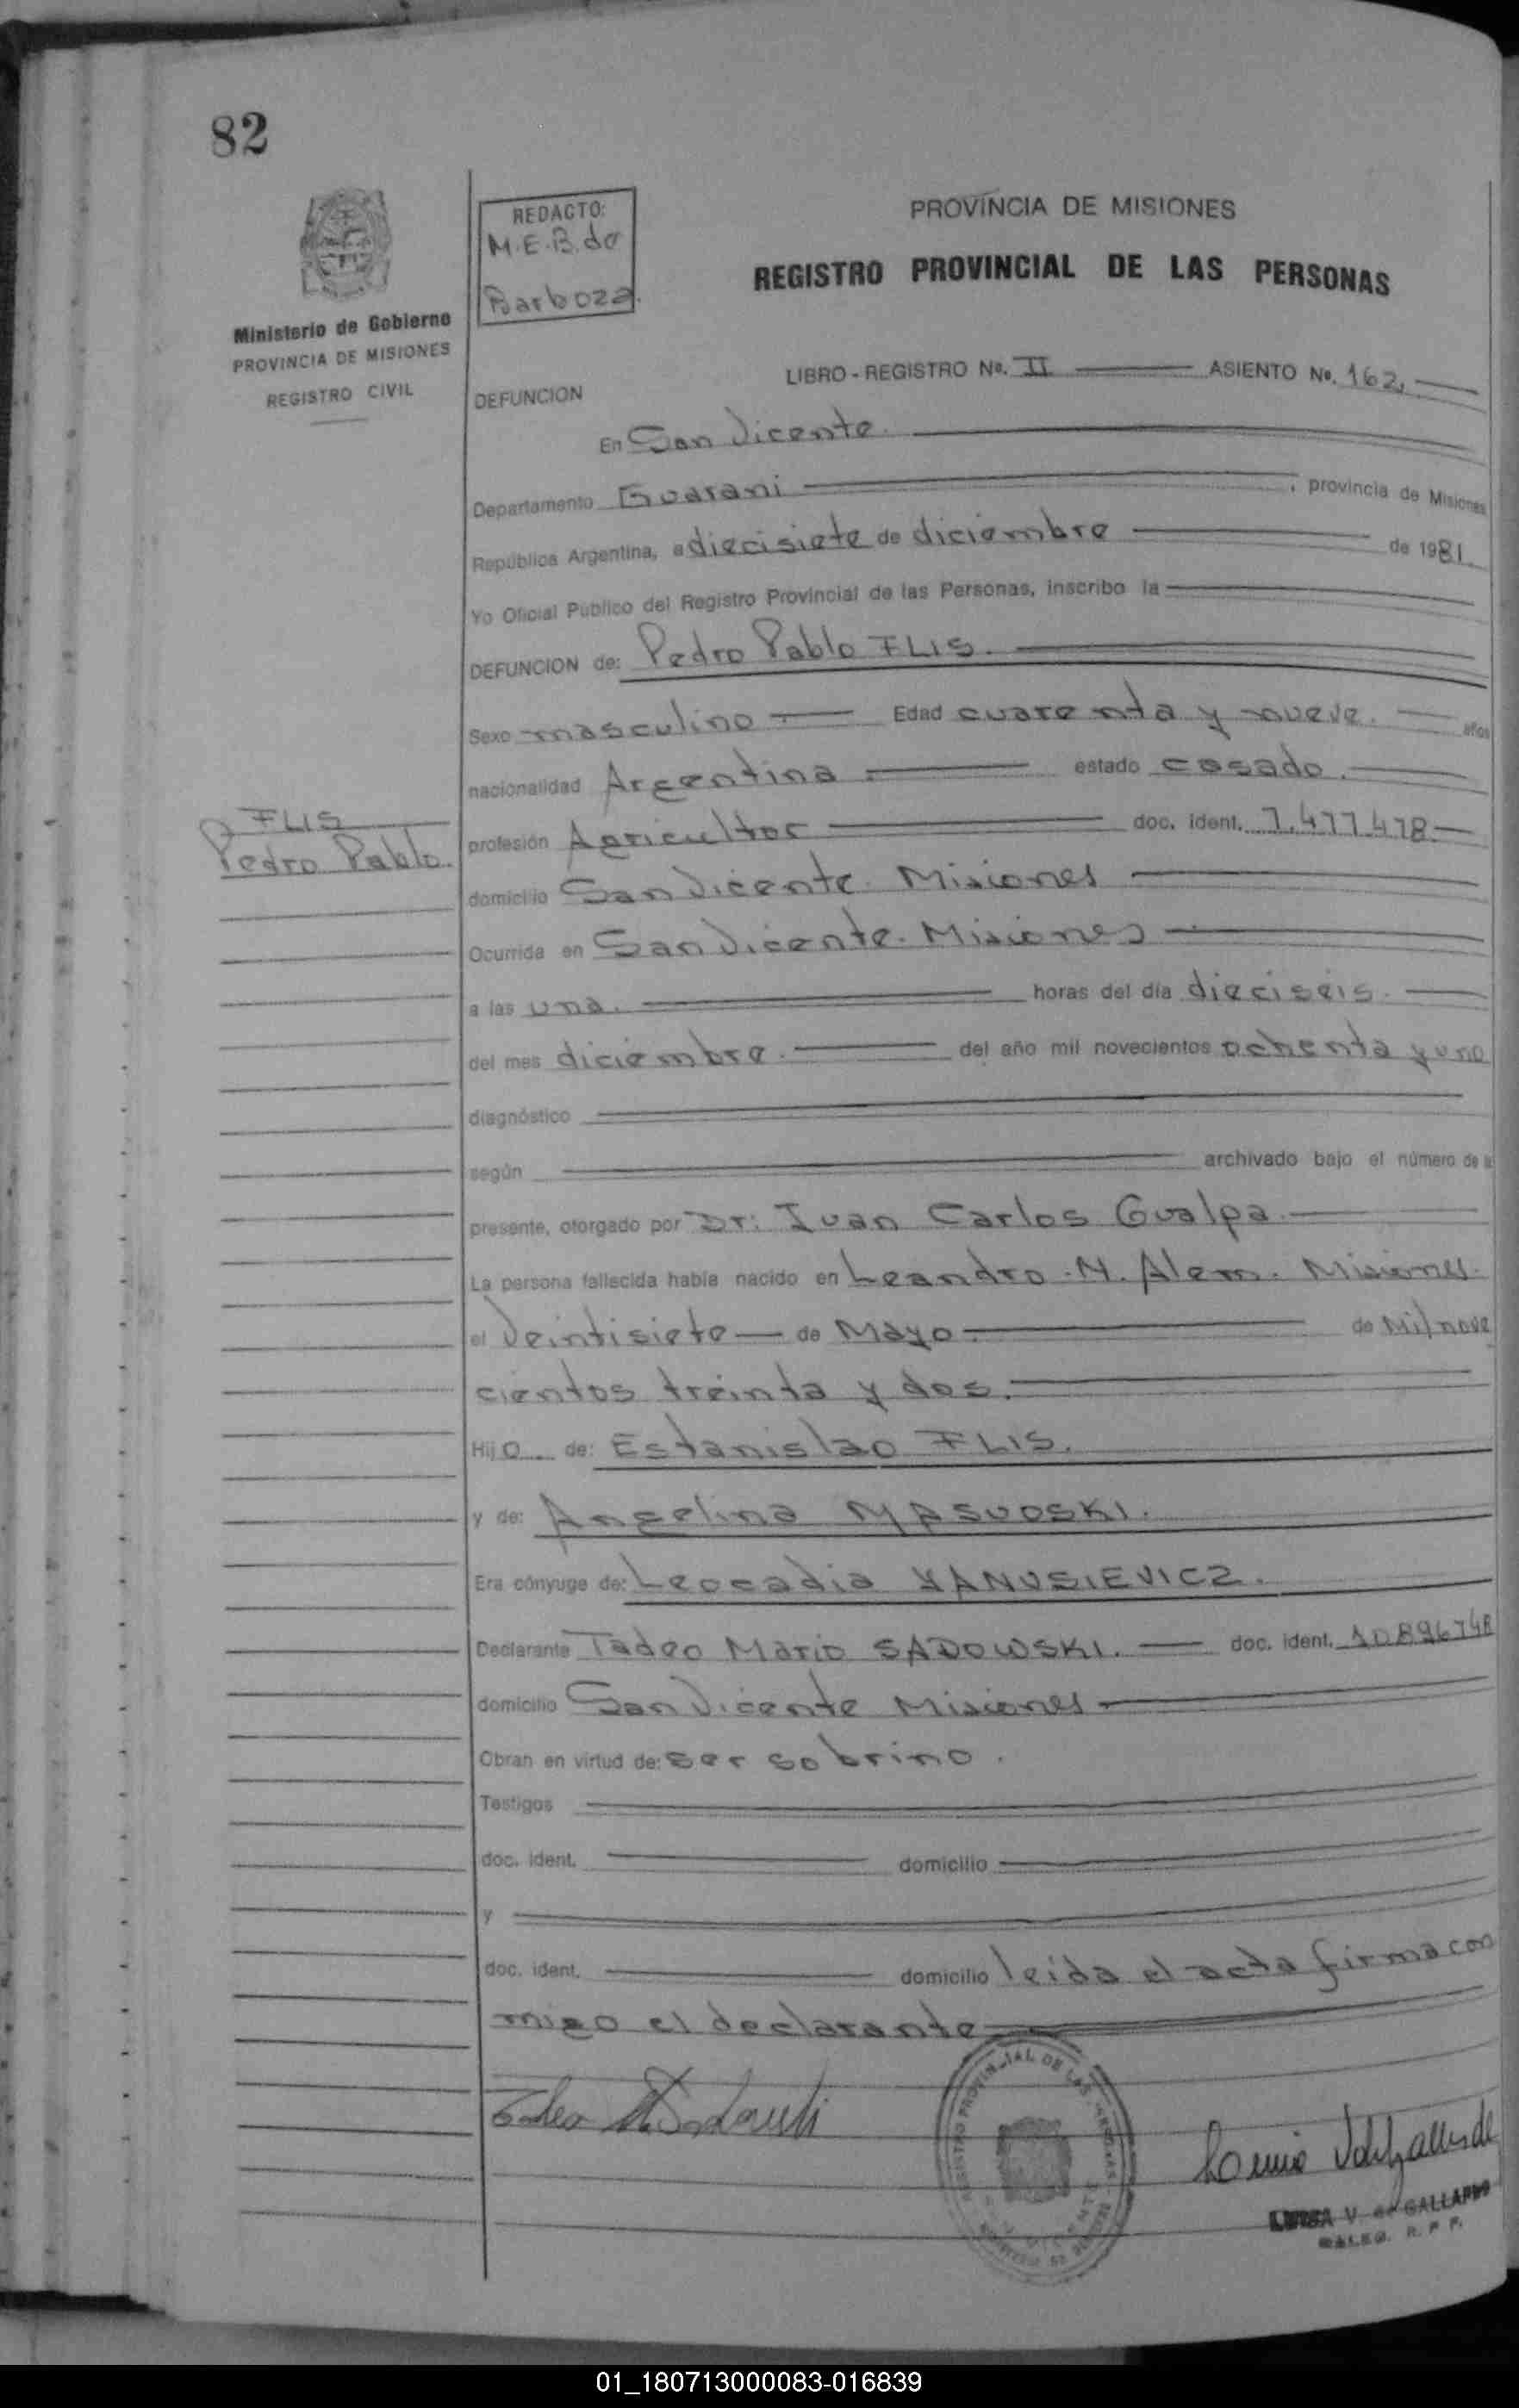 82
REDACTO:
M.E.B. de
Barboza.
PROVINCIA DE MISIONES
REGISTRO PROVINCIAL DE LAS PERSONAS
Ministerio de Gobierno
PROVINCIA DE MISIONES
REGISTRO CIVIL
LIBRO - REGISTRO No. II ASIENTO No. 162.
DEFUNCION
En San Vicente.
Departamento Guarani, provincia de Misiones
República Argentina, a diecisiete de diciembre de 1981.
Yo Oficial Público del Registro Provincial de las Personas, inscribo la
DEFUNCION de: Pedro Pablo FLIS.
Sexo masculino Edad cuarenta y nueve. años
nacionalidad Argentina estado casado.
FLIS
Pedro Pablo.
profesión Agricultor doc. ident. 7.477.478
domicilio San Vicente. Misiones
Ocurrida en San Vicente. Misiones
a las una. horas del día dieciseis.
del mes diciembre. del año mil novecientos ochenta y uno
diagnóstico
según archivado bajo el número de la
presente, otorgado por Dr: Juan Carlos Gualpa.
La persona fallecida había nacido en Leandro. N. Alem. Misiones.
el Veintisiete de Mayo. de Mil nove
cientos treinta y dos.
Hijo de: Estanislao FLIS.
y de: Angelina MASUOSKI.
Era cónyuge de: Leocadia YANUSIEVICZ.
Declarante Tadeo Mario SADOWSKI. doc. ident. 10896748
domicilio San Vicente Misiones
Obran en virtud de: ser sobrino.
Testigos
doc. ident. domicilio
y
doc. ident. domicilio leida el acta firma con
migo el declarante
REGISTRO PROVINCIAL DE LAS PERSONAS
LUISA V. de GALLARDO
01_180713000083-016839